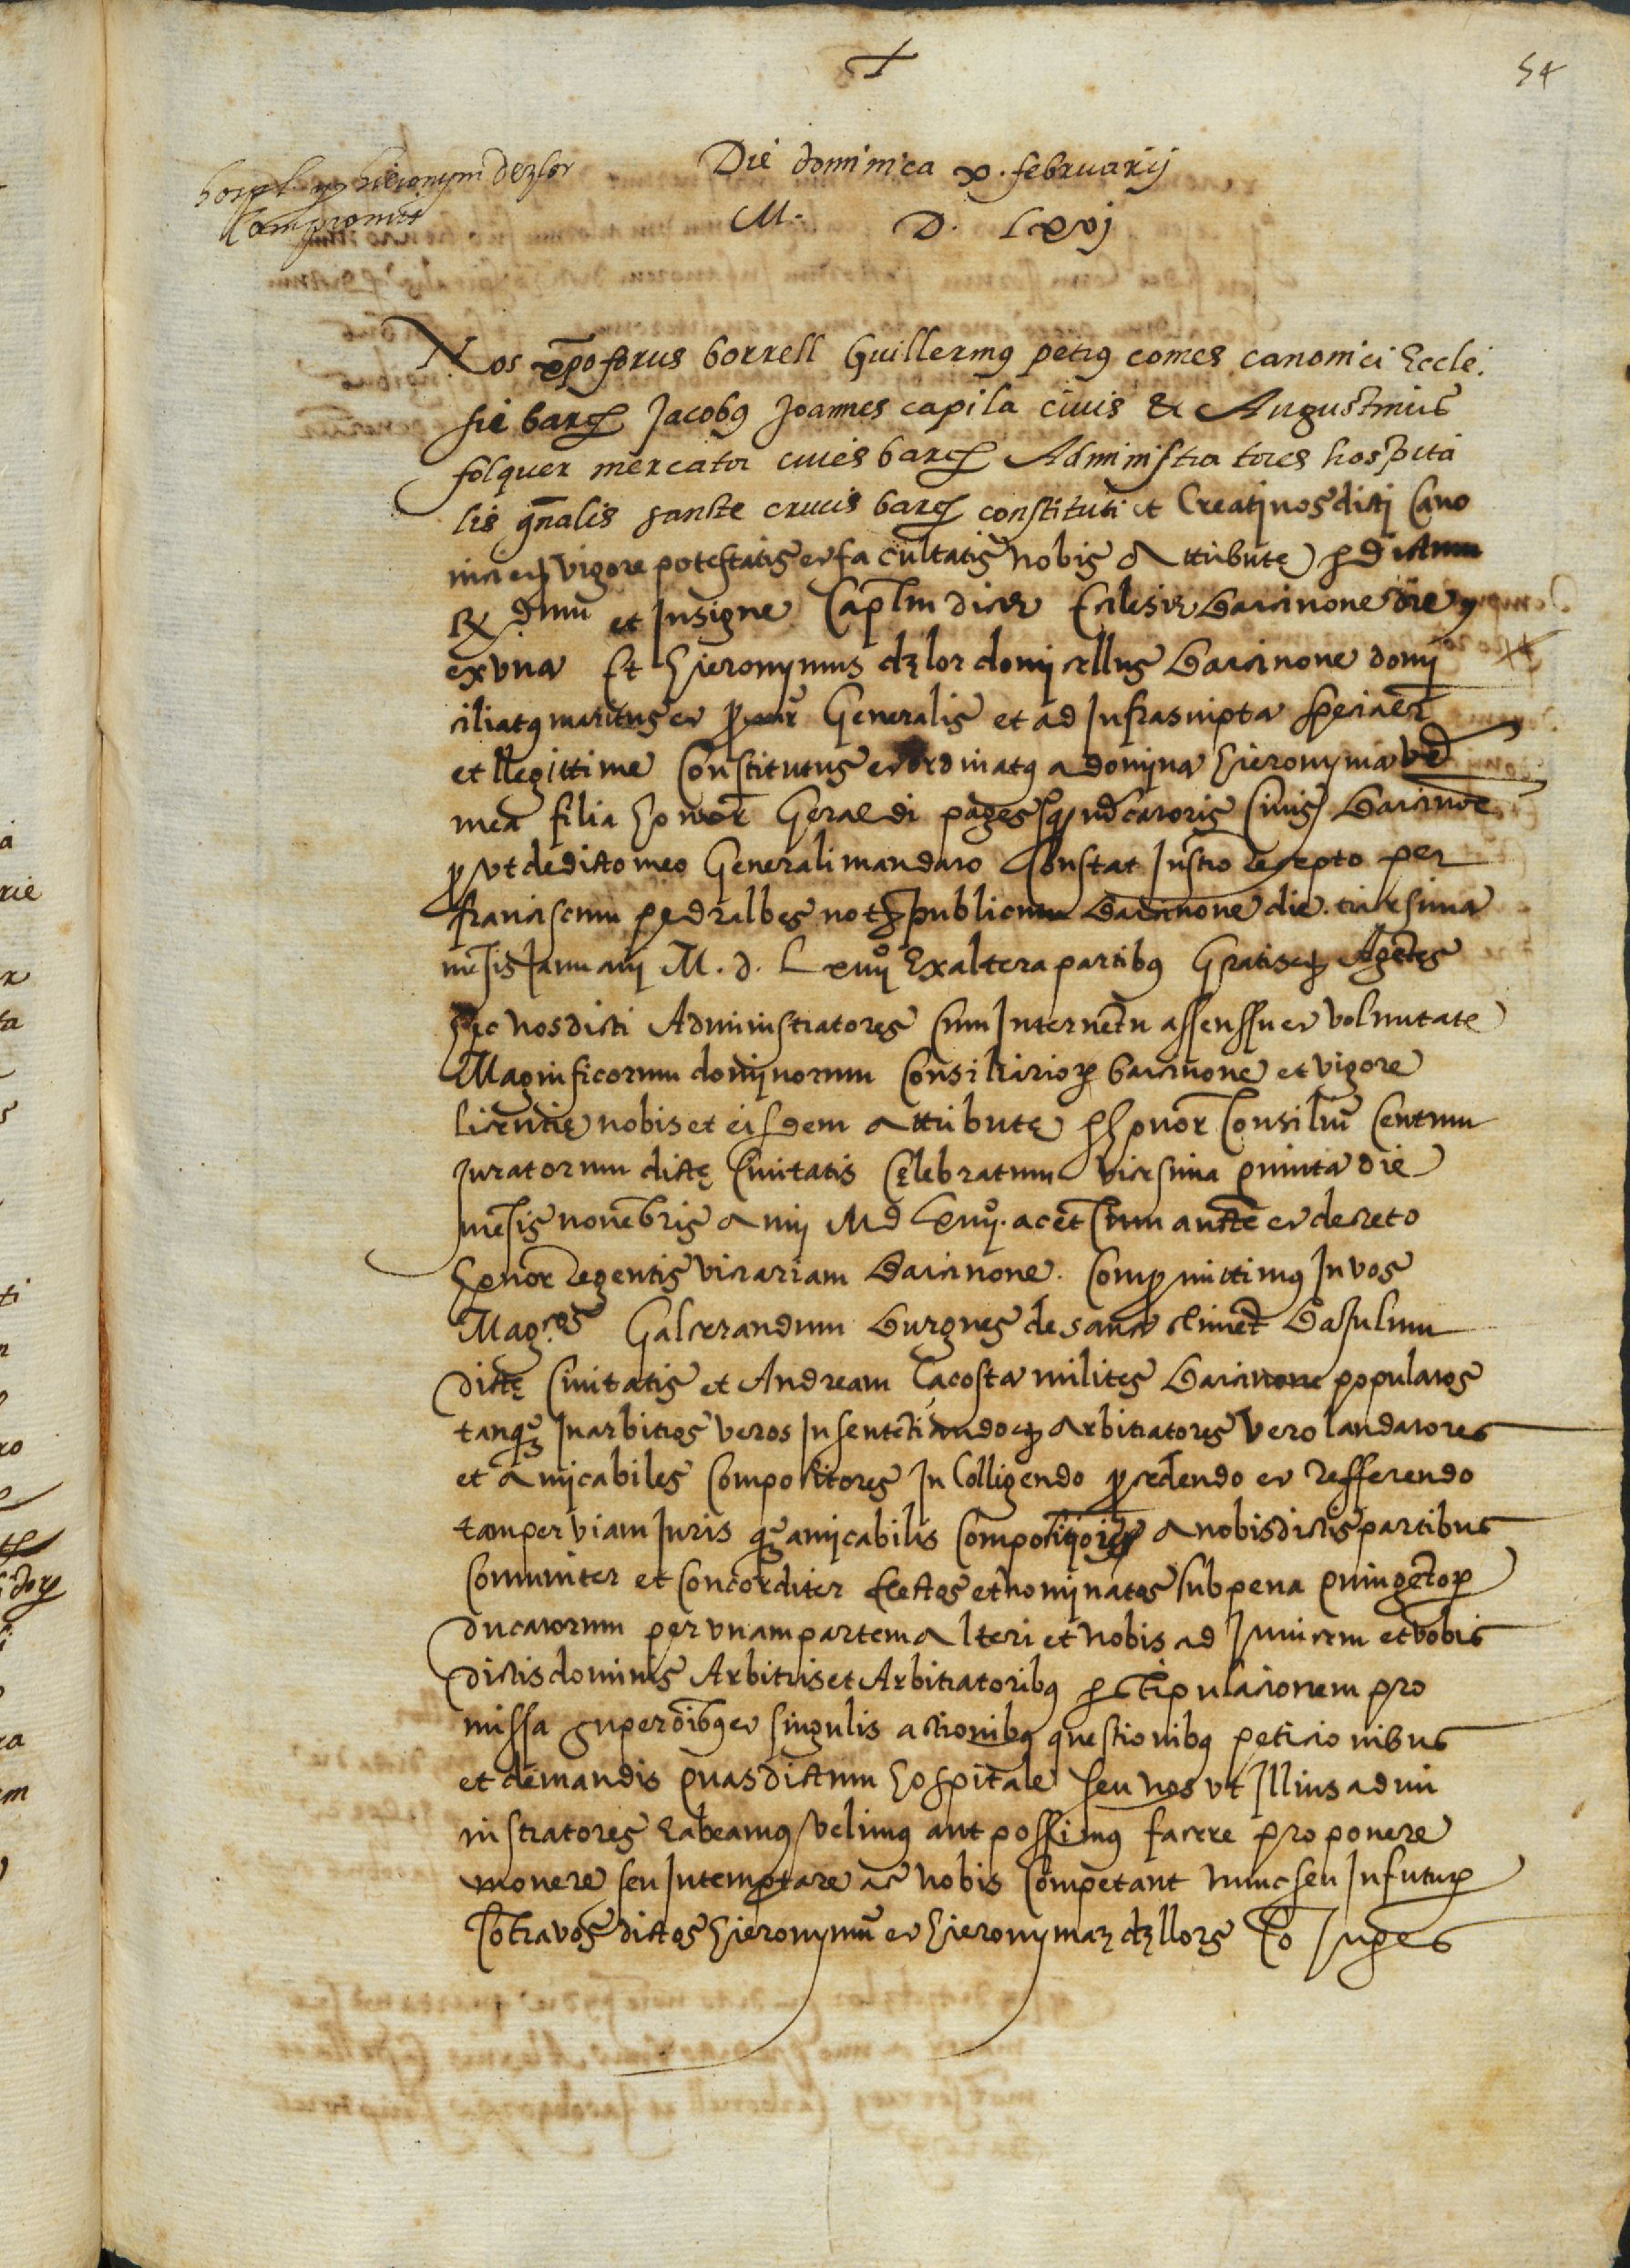 54
Die dominica x. februarij
M. D. Lxvj
hospl. y hieronym dezlor
Compromis
Nos xp̄oforus borrell Guillermꝯ petrꝯ comes canonici Eccle.
sie barcͤ Jacobꝯ Joannes capila ciuis & Augustinus
folquer mercator ciues barcͤ Administratores hospita
lis gn̄alis sancte crucis barcͤ constituti et Creati nos dicti Cano
nici ex vigore potestatis et facultatis nobis Attributę ꝑ dictum
Rx dnm et Insigne Capl̄m dicte Eclesie barcinone
ex vna Et hieronymus dezlor domicellus barcinone domi
ciliatꝯ maritus et procur̄ Generalis et ad Infrascripta specialr̄
et llegittime Constitutus et ordinatꝯ a domina hieronyma vx̄
mea filia honor̄ Geraldi pages quond̄ mercatoris Ciuis barcinoe
ꝓ vt de dicto meo Generali mandato Constat Instro recepto per
franciscum pedralbes not publicum barcinone die tricesima
mēsis Januarij M. d. Lxiiijº Ex altera partibꝯ Gratis Agentes
hec nos dicti Administratores Cum Interuētu assenssu et voluntate
Magnificorum dominorum Consiliarioꝝ barcinone et vigore
licentię nobis et eisdem Attributę ꝑ honor̄ Consiliū Centum
Juratorum dictę Ciuitatis Cęlebratum vicesima quinta die
mēsis nouēbris Anni M d Lxiiijº. ac et̄ Cum aucte et decreto
honor̄ Regentis vicariam barcinone. Comꝓmittimꝯ In vos
Mag.cos Galcerandum burgues de sanct climēt baiulum
dictę Ciuitatis et Andream Cacosta milites barcinone populatos
tanqꝫ In arbitros veros In sentētiando Arbitratores vero laudatores
et Amicabiles Compositores In Colligendo ꝓcedendo et Refferendo
tam per viam Juris qꝫ amicabilis Compositiois A nobis dictis partibus
Comuniter et Concorditer Electos et nominatos sub pena quingētoꝝ
ducatorum per vnam partem Alteri et nobis ad Inuicem et vobis
dictis dominis Arbitris et Arbitratoribꝯ ꝑ stipulacionem pro
missa super oībꝯ et singulis actionibꝯ questionibꝯ peticionibus
et demandis quas dictum hospitale seu nos vt Illius admi
nistratores habeamꝯ velimꝯ aut possimꝯ facere proponere
mouere seu Intemptare ac nobis Competant nunc seu In futuꝝ
Cōtra vos dictos hieronymū et hieronymaꝫ dezllors Cō Juges